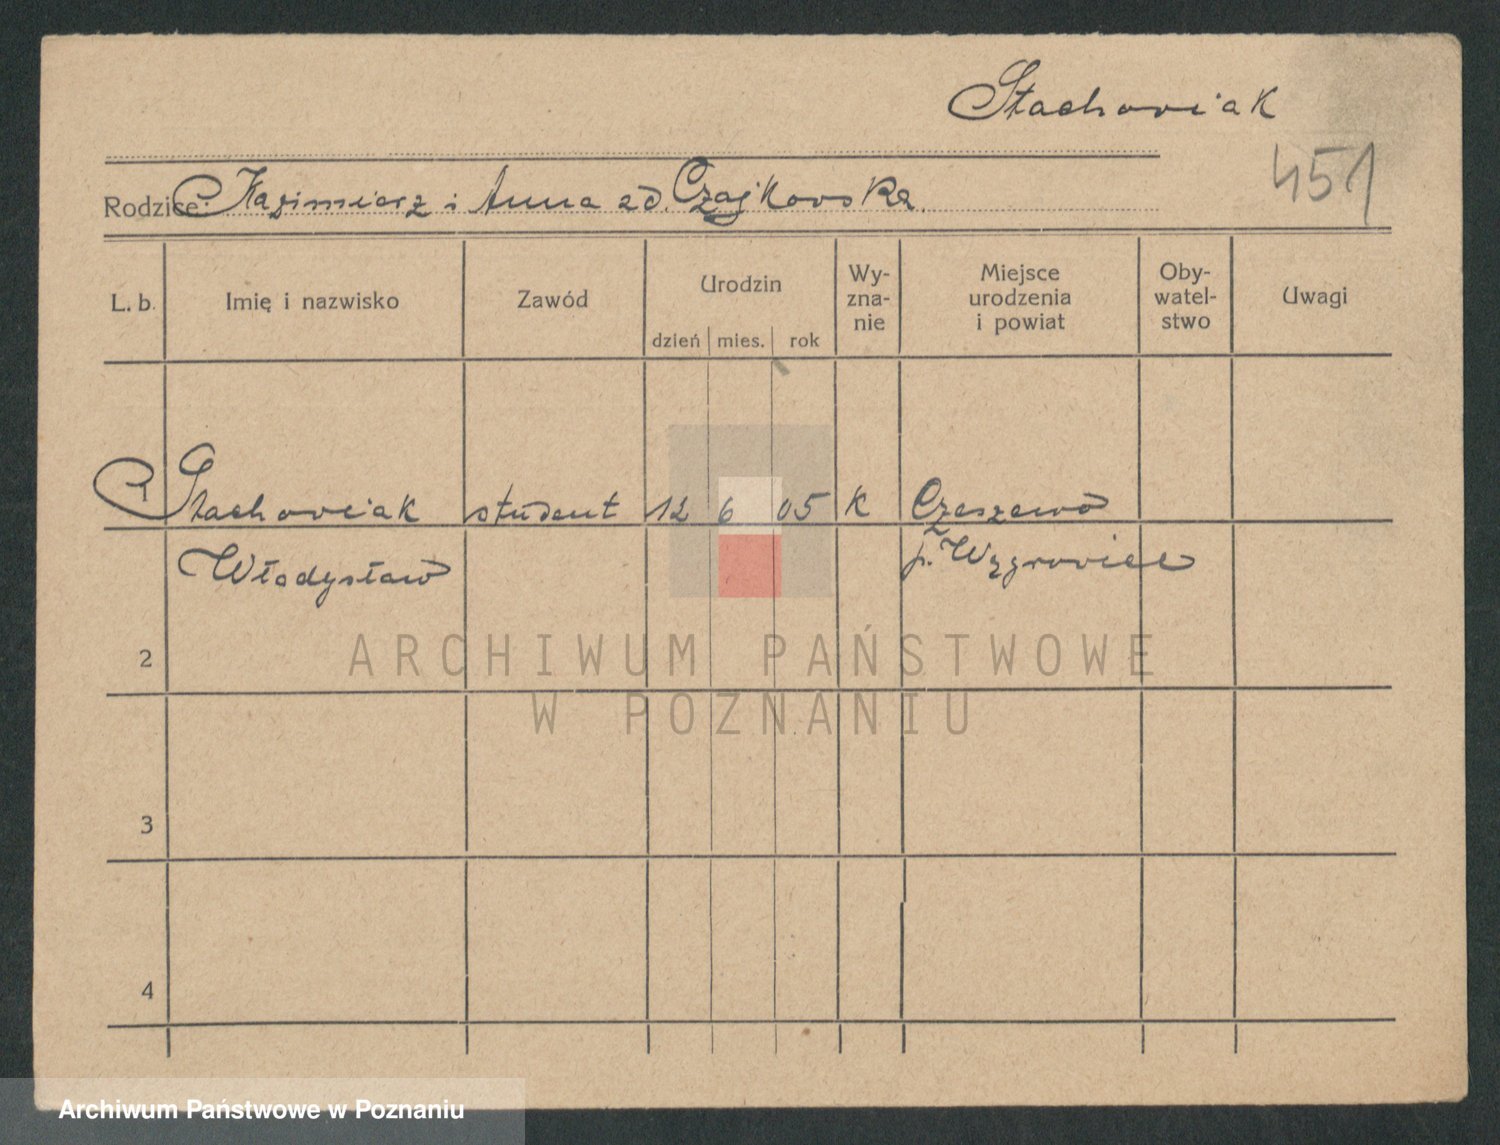 Stachoviak
451
Rodzice: Kazimierz i Anna zd. Czajkovska.
L. b. Imię i nazwisko Zawód Urodzin dzień mies. rok Wy-zna-nie Miejsce urodzenia i powiat Oby-watel-stwo Uwagi
1 Stachoviak student 12 6 05 K Czeszewo
Władysław p. Wągroviec
2
3
4
ARCHIWUM PAŃSTWOWE
W POZNANIU
Archiwum Państwowe w Poznaniu